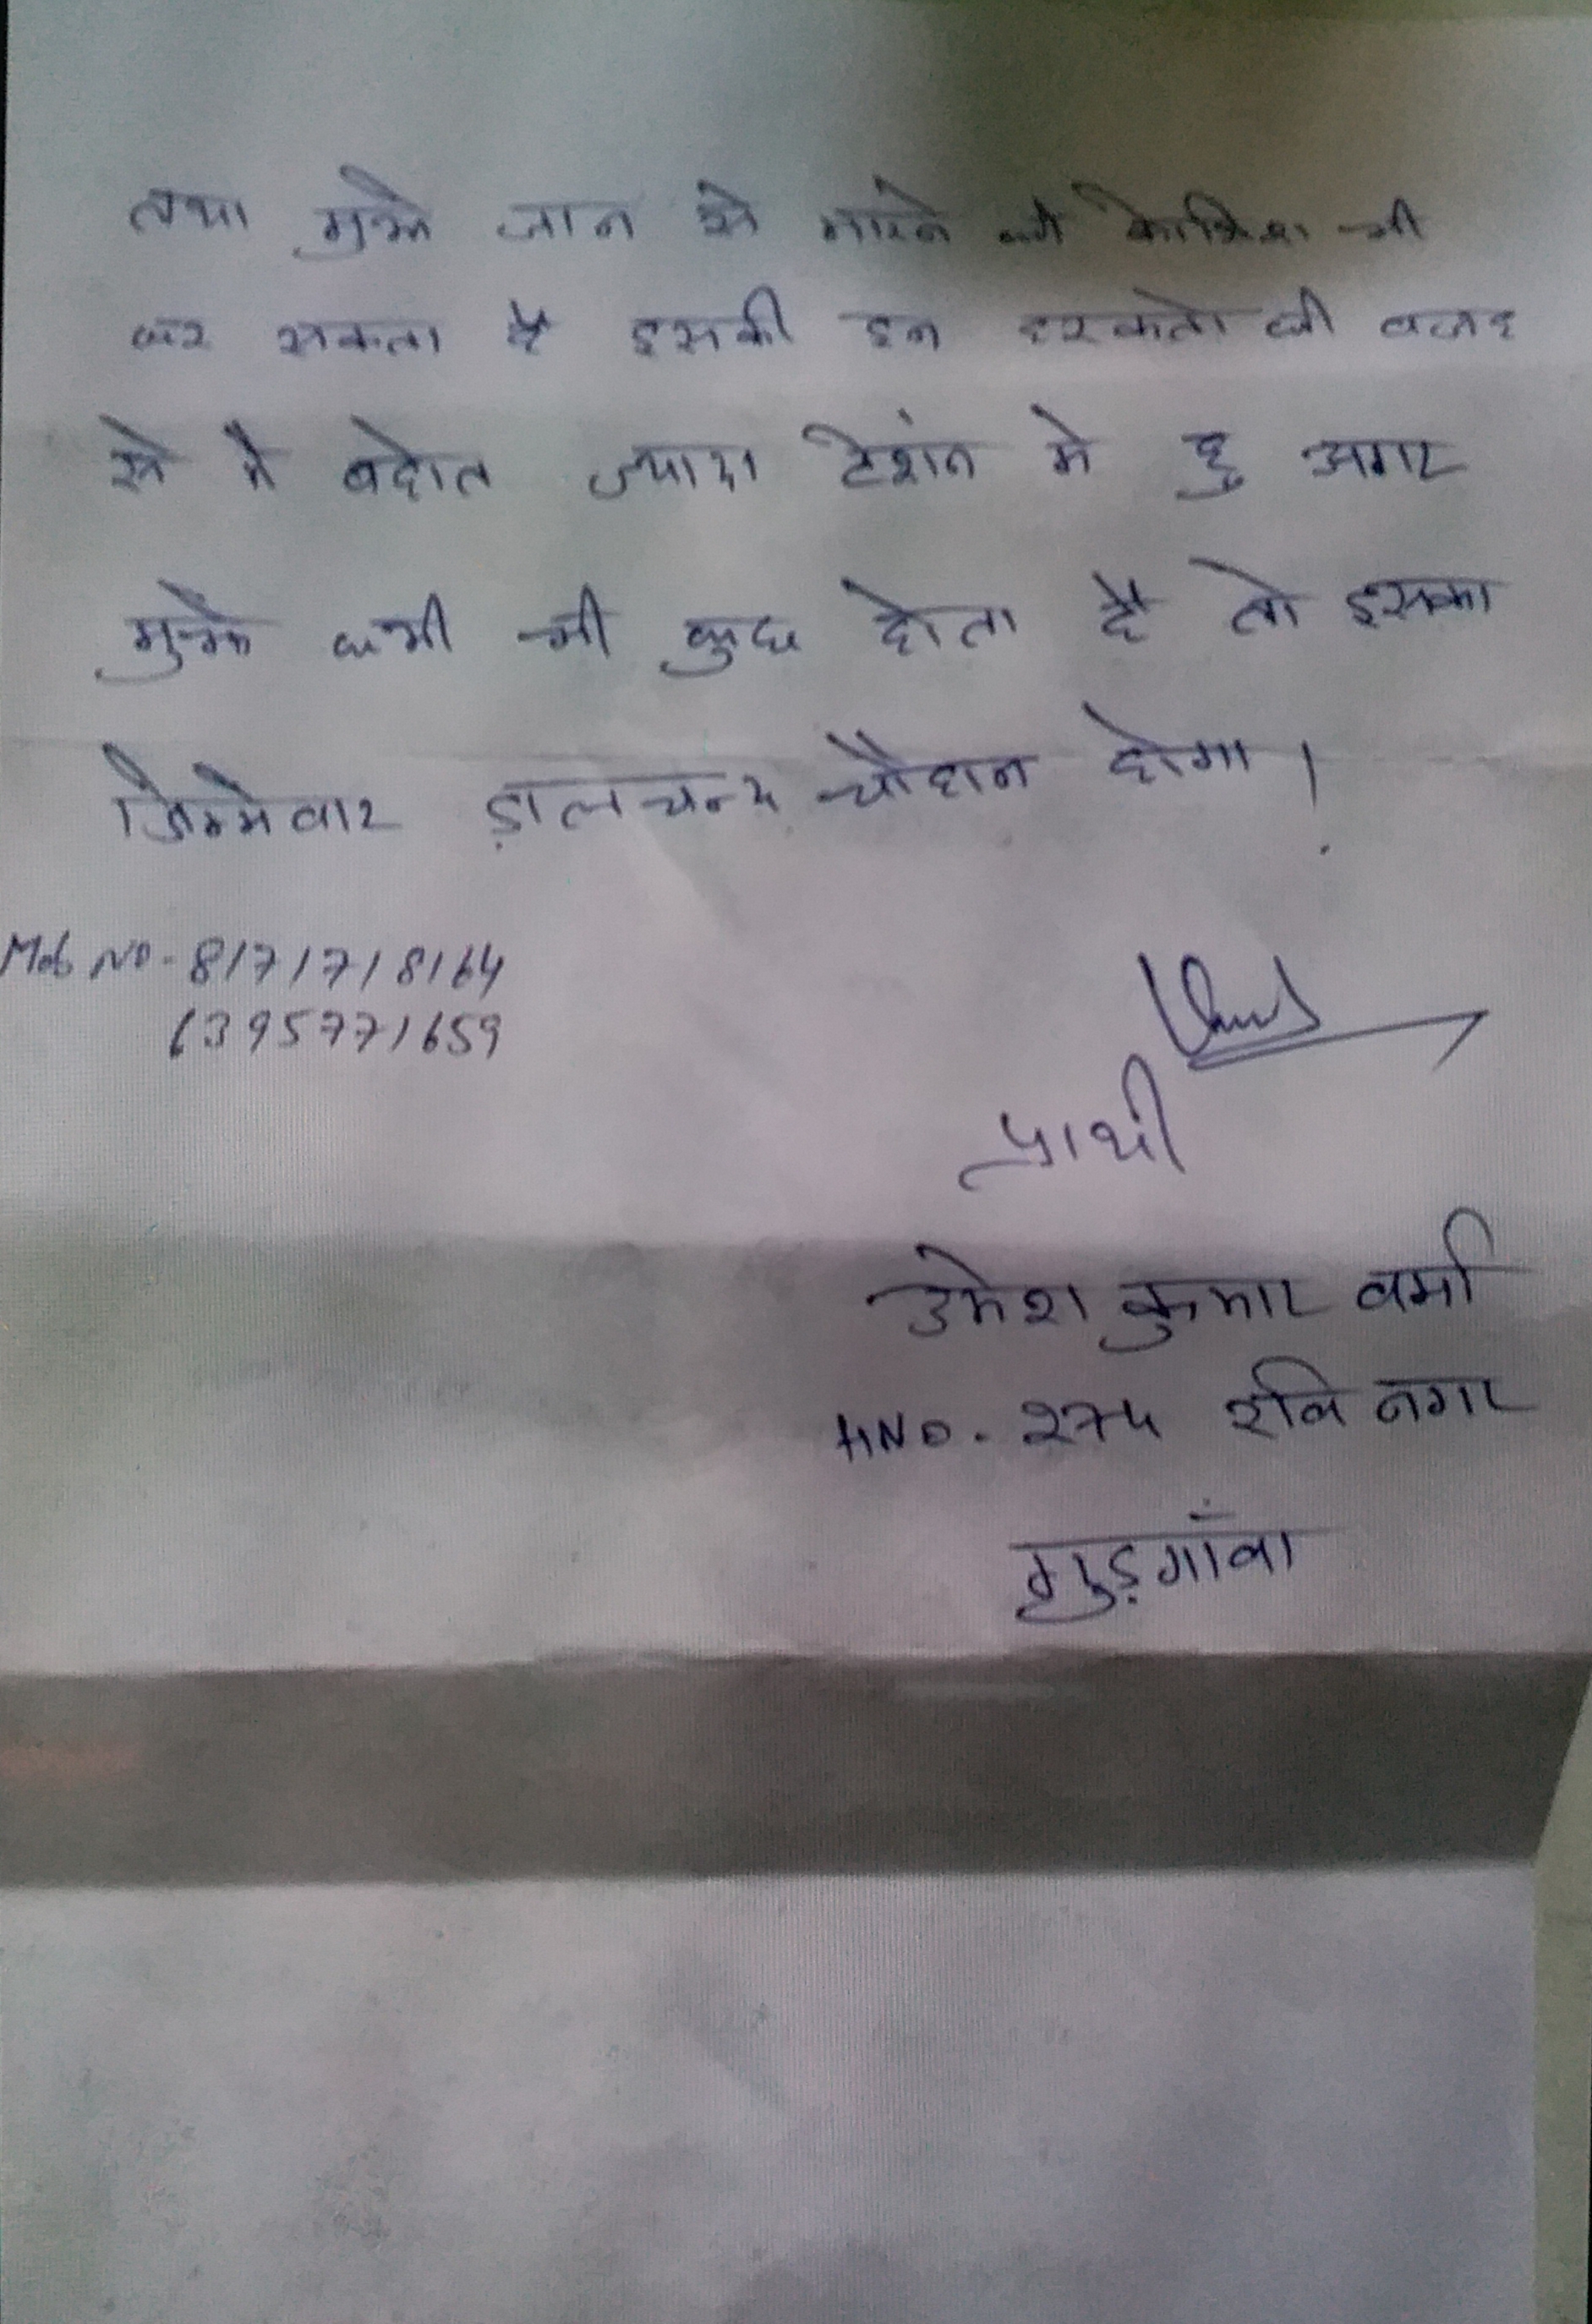 तथा मुझे जान से मारने की कोशिश भी
कर सकता है इसकी इन हरकतो की वजह
से मै बहोत ज्यादा टेशंन मे हु अगर
मुझे कभी भी कुछ होता है तो इसका
जिम्मेवार ड़ालचन्द चौहान होगा।
Mob No- 8171718164
6395771659
प्रार्थी
उमेश कुमार वर्मा
HNO. 274 रवि नगर
गुड़गाँवा